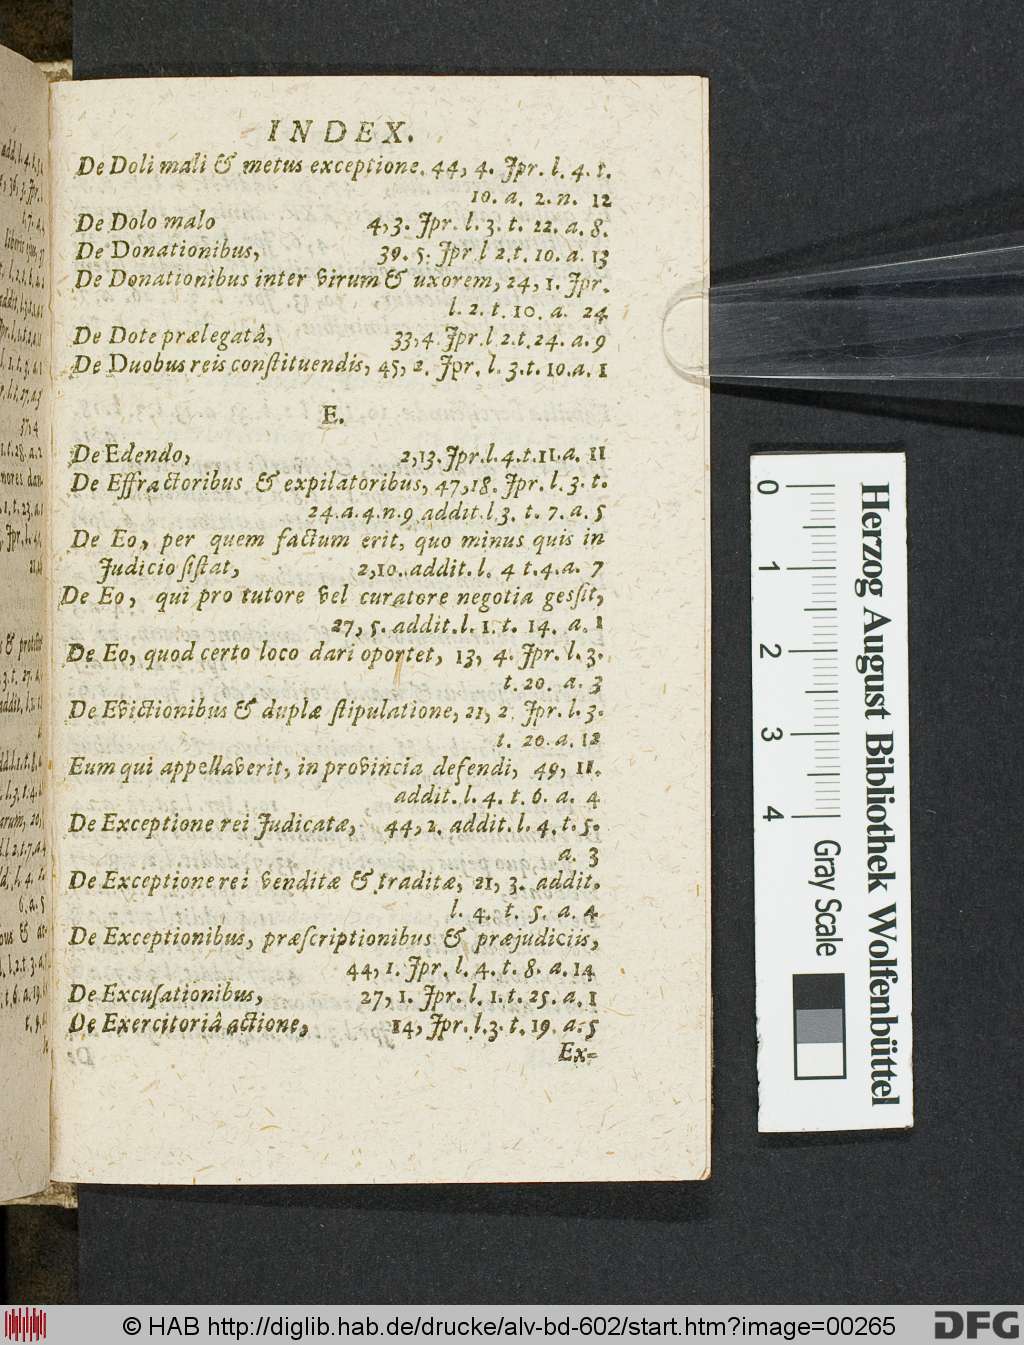 INDEX.
De Doli mali & metus exceptione. 44, 4. Jpr. l. 4. t.
10. a. 2. n. 12
De Dolo malo 4,3. Jpr. l. 3. t. 22. a. 8.
De Donationibus, 39. 5. Jpr. l 2. t. 10. a. 13
De Donationibus inter virum & uxorem, 24, 1. Jpr.
l. 2. t. 10. a. 24
De Dote prælegatâ, 33,4 Jpr. l 2. t. 24. a. 9
De Duobus reis conſtituendis, 45, 2. Jpr. l. 3. t. 10. a. 1
E.
De Edendo, 2,13. Jpr. l. 4. t. 11. a. 11
De Effractoribus & expilatoribus, 47,18. Jpr. l. 3. t.
24. a. 4. n. 9 addit. l 3. t. 7. a. 5
De Eo, per quem factum erit, quo minus quis in
Judicio ſiſtat, 2,10. addit. l. 4 t. 4. a. 7
De Eo, qui pro tutore vel curatore negotia gesſit,
27, 5. addit. l. 1. t. 14. a. 1
De Eo, quod certo loco dari oportet, 13, 4. Jpr. l. 3.
t. 20. a. 3
De Evictionibus & duplæ ſtipulatione, 21, 2 Jpr. l. 3.
t. 20. a. 12
Eum qui appellaverit, in provincia defendi, 49, 11.
addit. l. 4. t. 6. a. 4
De Exceptione rei Judicatæ, 44,2. addit. l. 4. t. 5.
a. 3
De Exceptione rei venditæ & traditæ, 21, 3. addit.
l. 4. t. 5. a. 4
De Exceptionibus, præſcriptionibus & præjudiciis,
44, 1. Jpr. l. 4. t. 8. a. 14
De Excuſationibus, 27, 1. Jpr. l. 1. t. 25. a. 1
De Exercitoriâ actione, 14, Jpr. l. 3. t. 19. a. 5
Ex-
0 1 2 3 4
Herzog August Bibliothek Wolfenbüttel
Gray Scale
© HAB http://diglib.hab.de/drucke/alv-bd-602/start.htm?image=00265
DFG